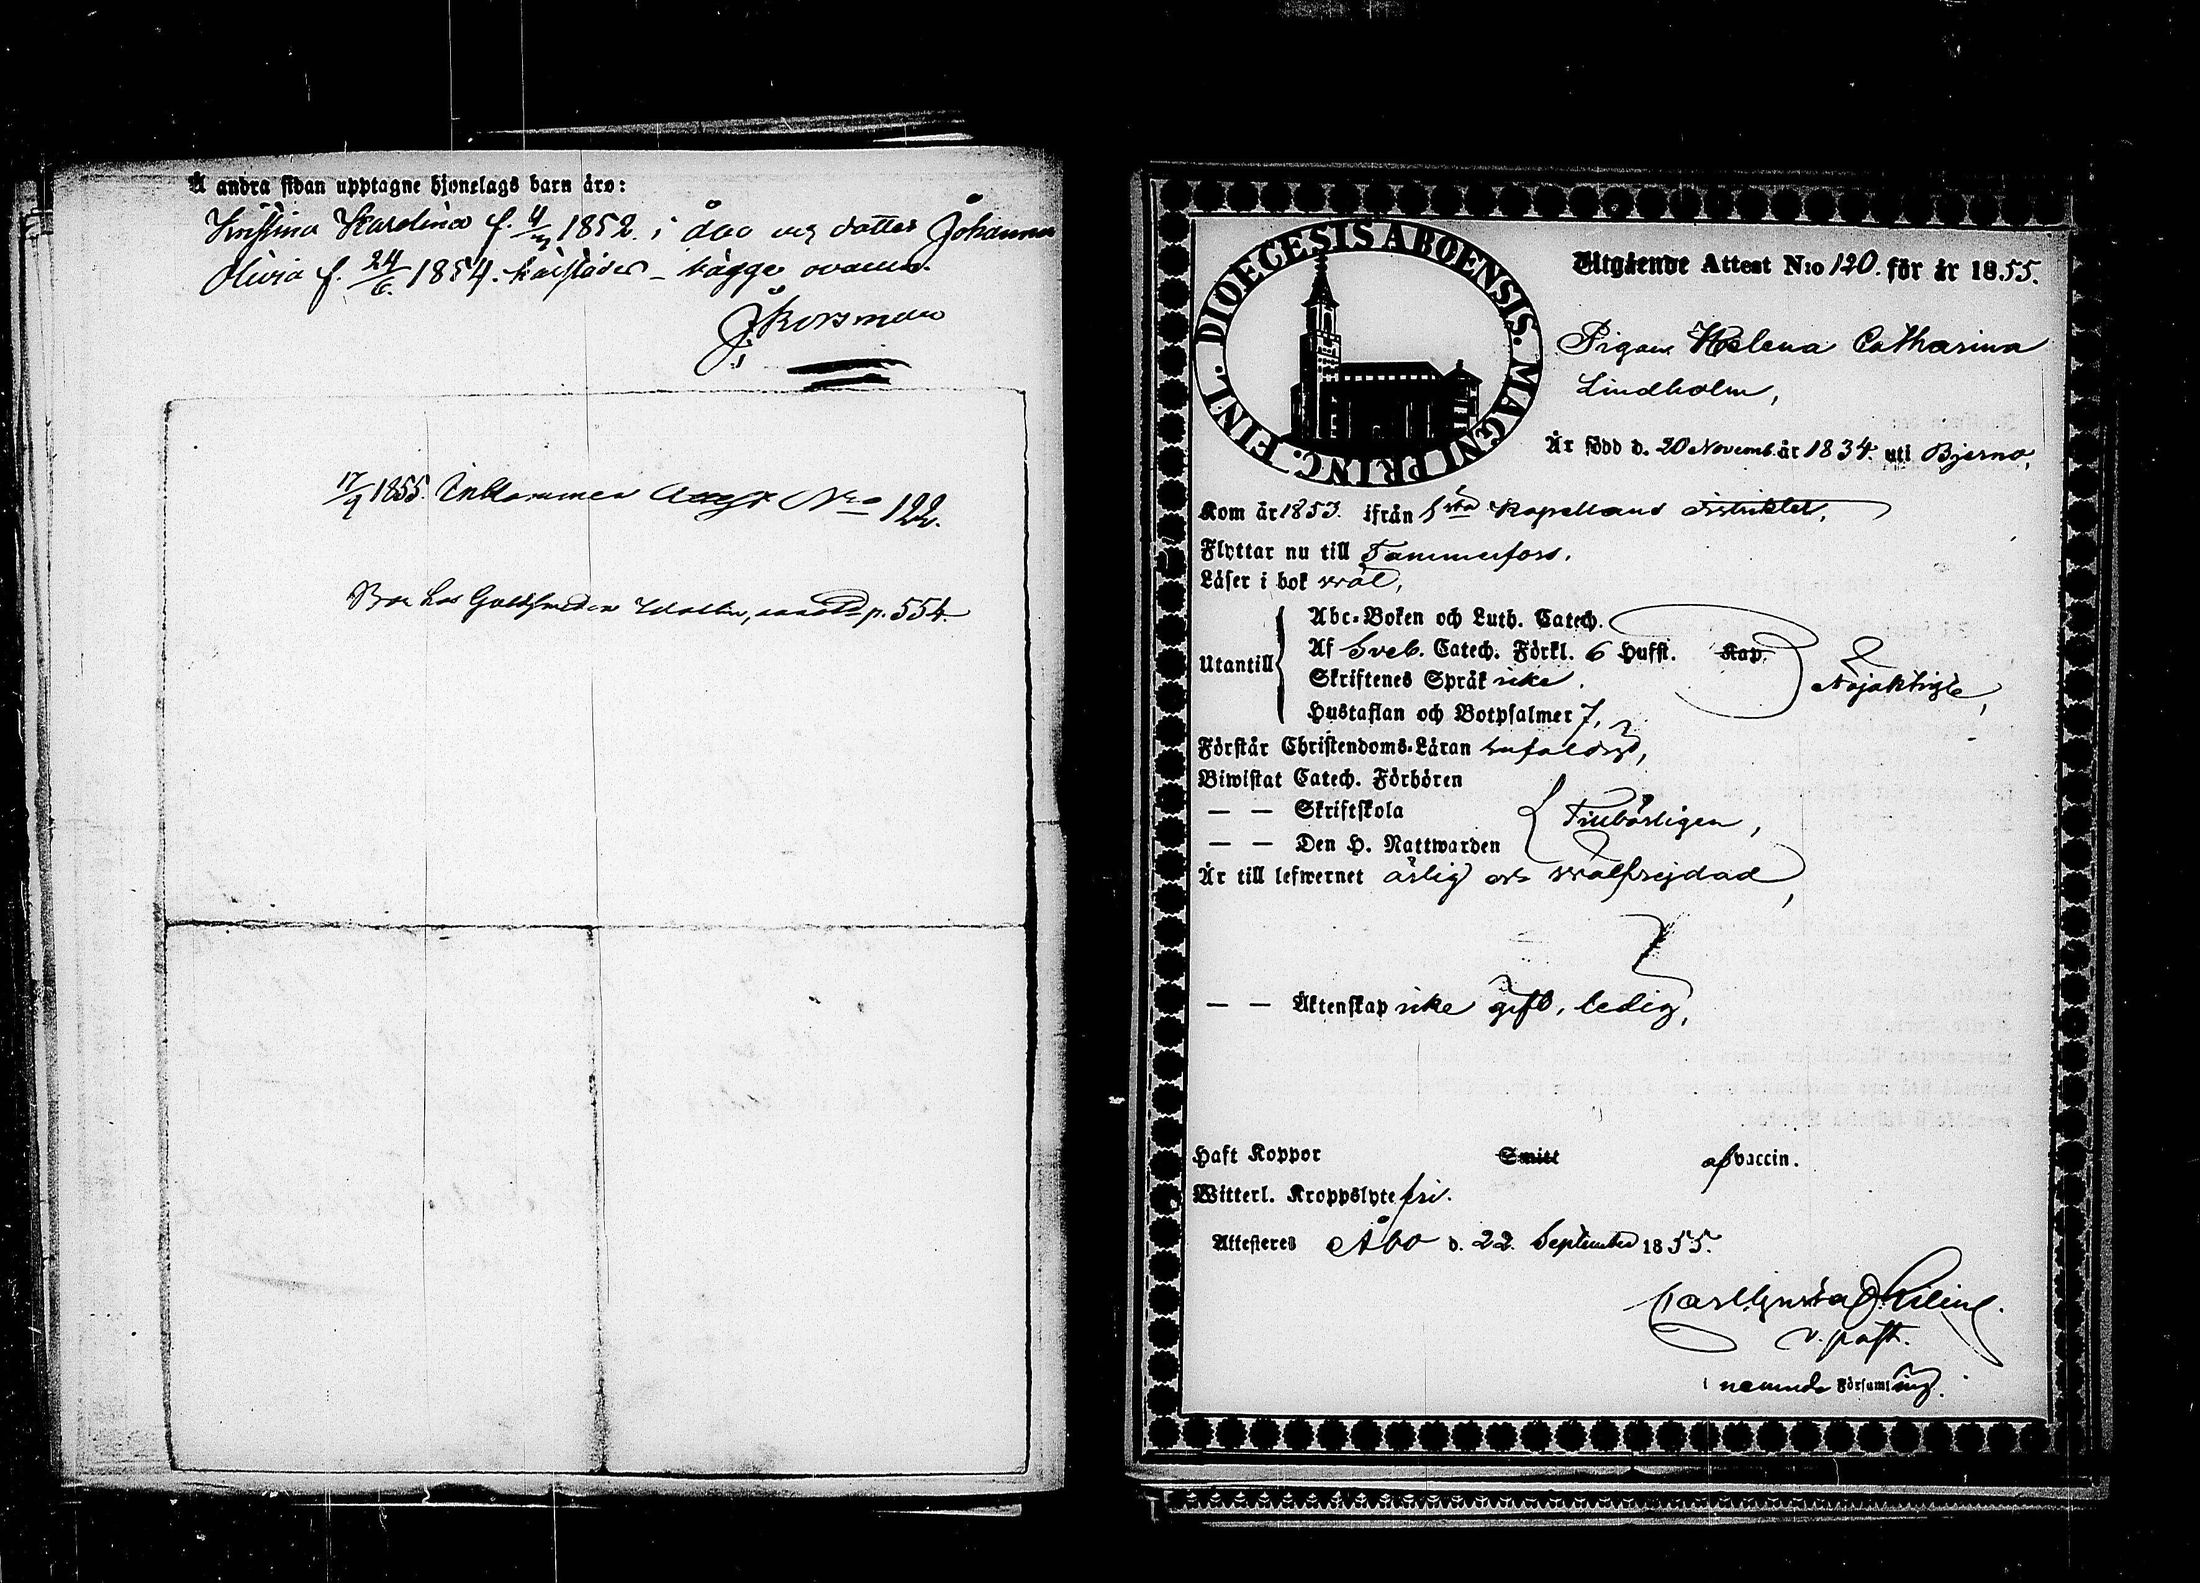 Å andra sidan upptagne hjonelags barn äro:
Kristina Karolina f. 4/3 1852. i Åbo och dotter Johanna
Olivia f. 24/6. 1854. härstädes – bägge ovaccin.
J. Korsman
17/9 1855. Inkommen Attest Nro 122.
Bor hos Guldsmeden Wallin, p. 554.
DIOECESIS ABOENSIS. MAGNI PRINC. FINL.
Utgående Attest N:o 120. för år 1855.
Pigan Helena Catharina
Lindholm,
Är född d. 20 Novemb. år 1834. uti Bjerno,
Kom år 1853. ifrån Kapellans distriktet,
Flyttar nu till Tammerfors.
Läser i bok wäl,
Utantill
Abc-Boken och Luth. Catech.
Af Sveb. Catech. Förkl. 6 Hufst. Kap.
Skriftenes Språk icke.
Hustaflan och Botpsalmer 7,
Nöjaktigt,
Förstår Christendoms-Läran enfaldigt,
Biwistat Catech. Förhören
— — Skriftskola
— — Den H. Nattwarden
Tillbörligen,
Är till lefwernet ärlig och wälfrejdad,
— — Äktenskap icke gift, ledig,
Haft Koppor Smitt af vaccin.
Witterl. Kroppslyte fri.
Attesteres Åbo d. 22. September 1855.
Carl Gustaf
v. past.
i nämnde Församling.